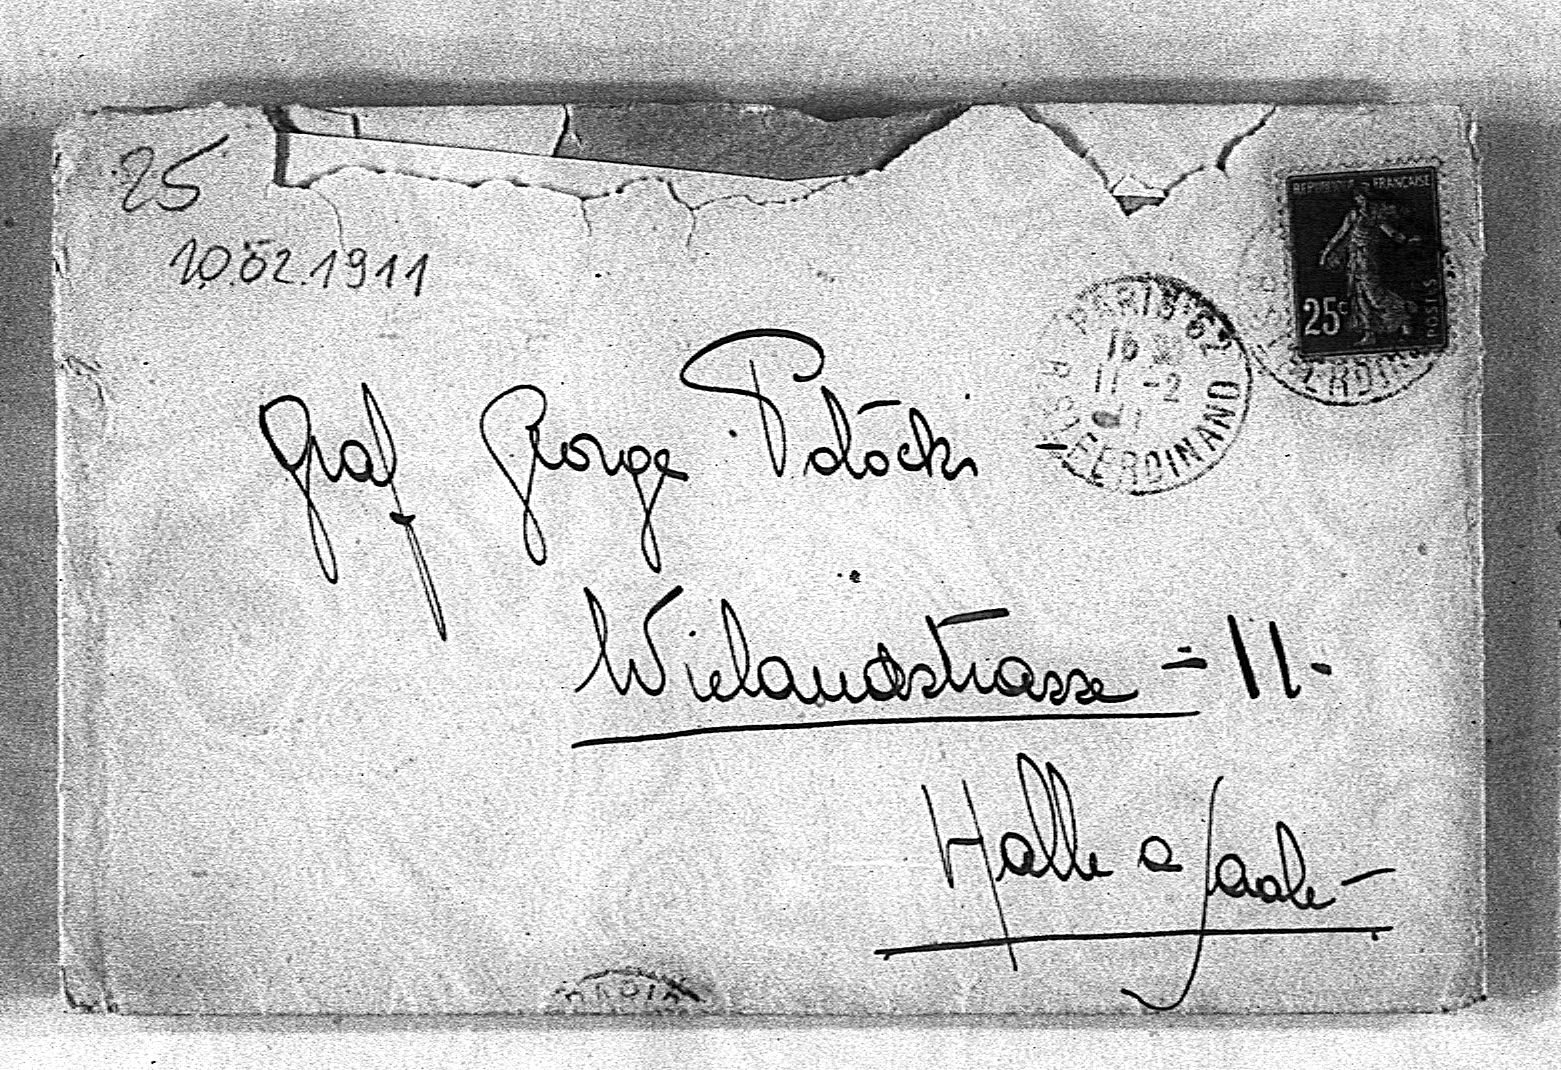 25
10.02.1911
REPUBLIQUE FRANCAISE
25c
POSTES
PARIS 62
11 -2
11
R. ST FERDINAND
Graf George Potócki -
Wielandstrasse - 11.
Halle a Saale -
PARIS